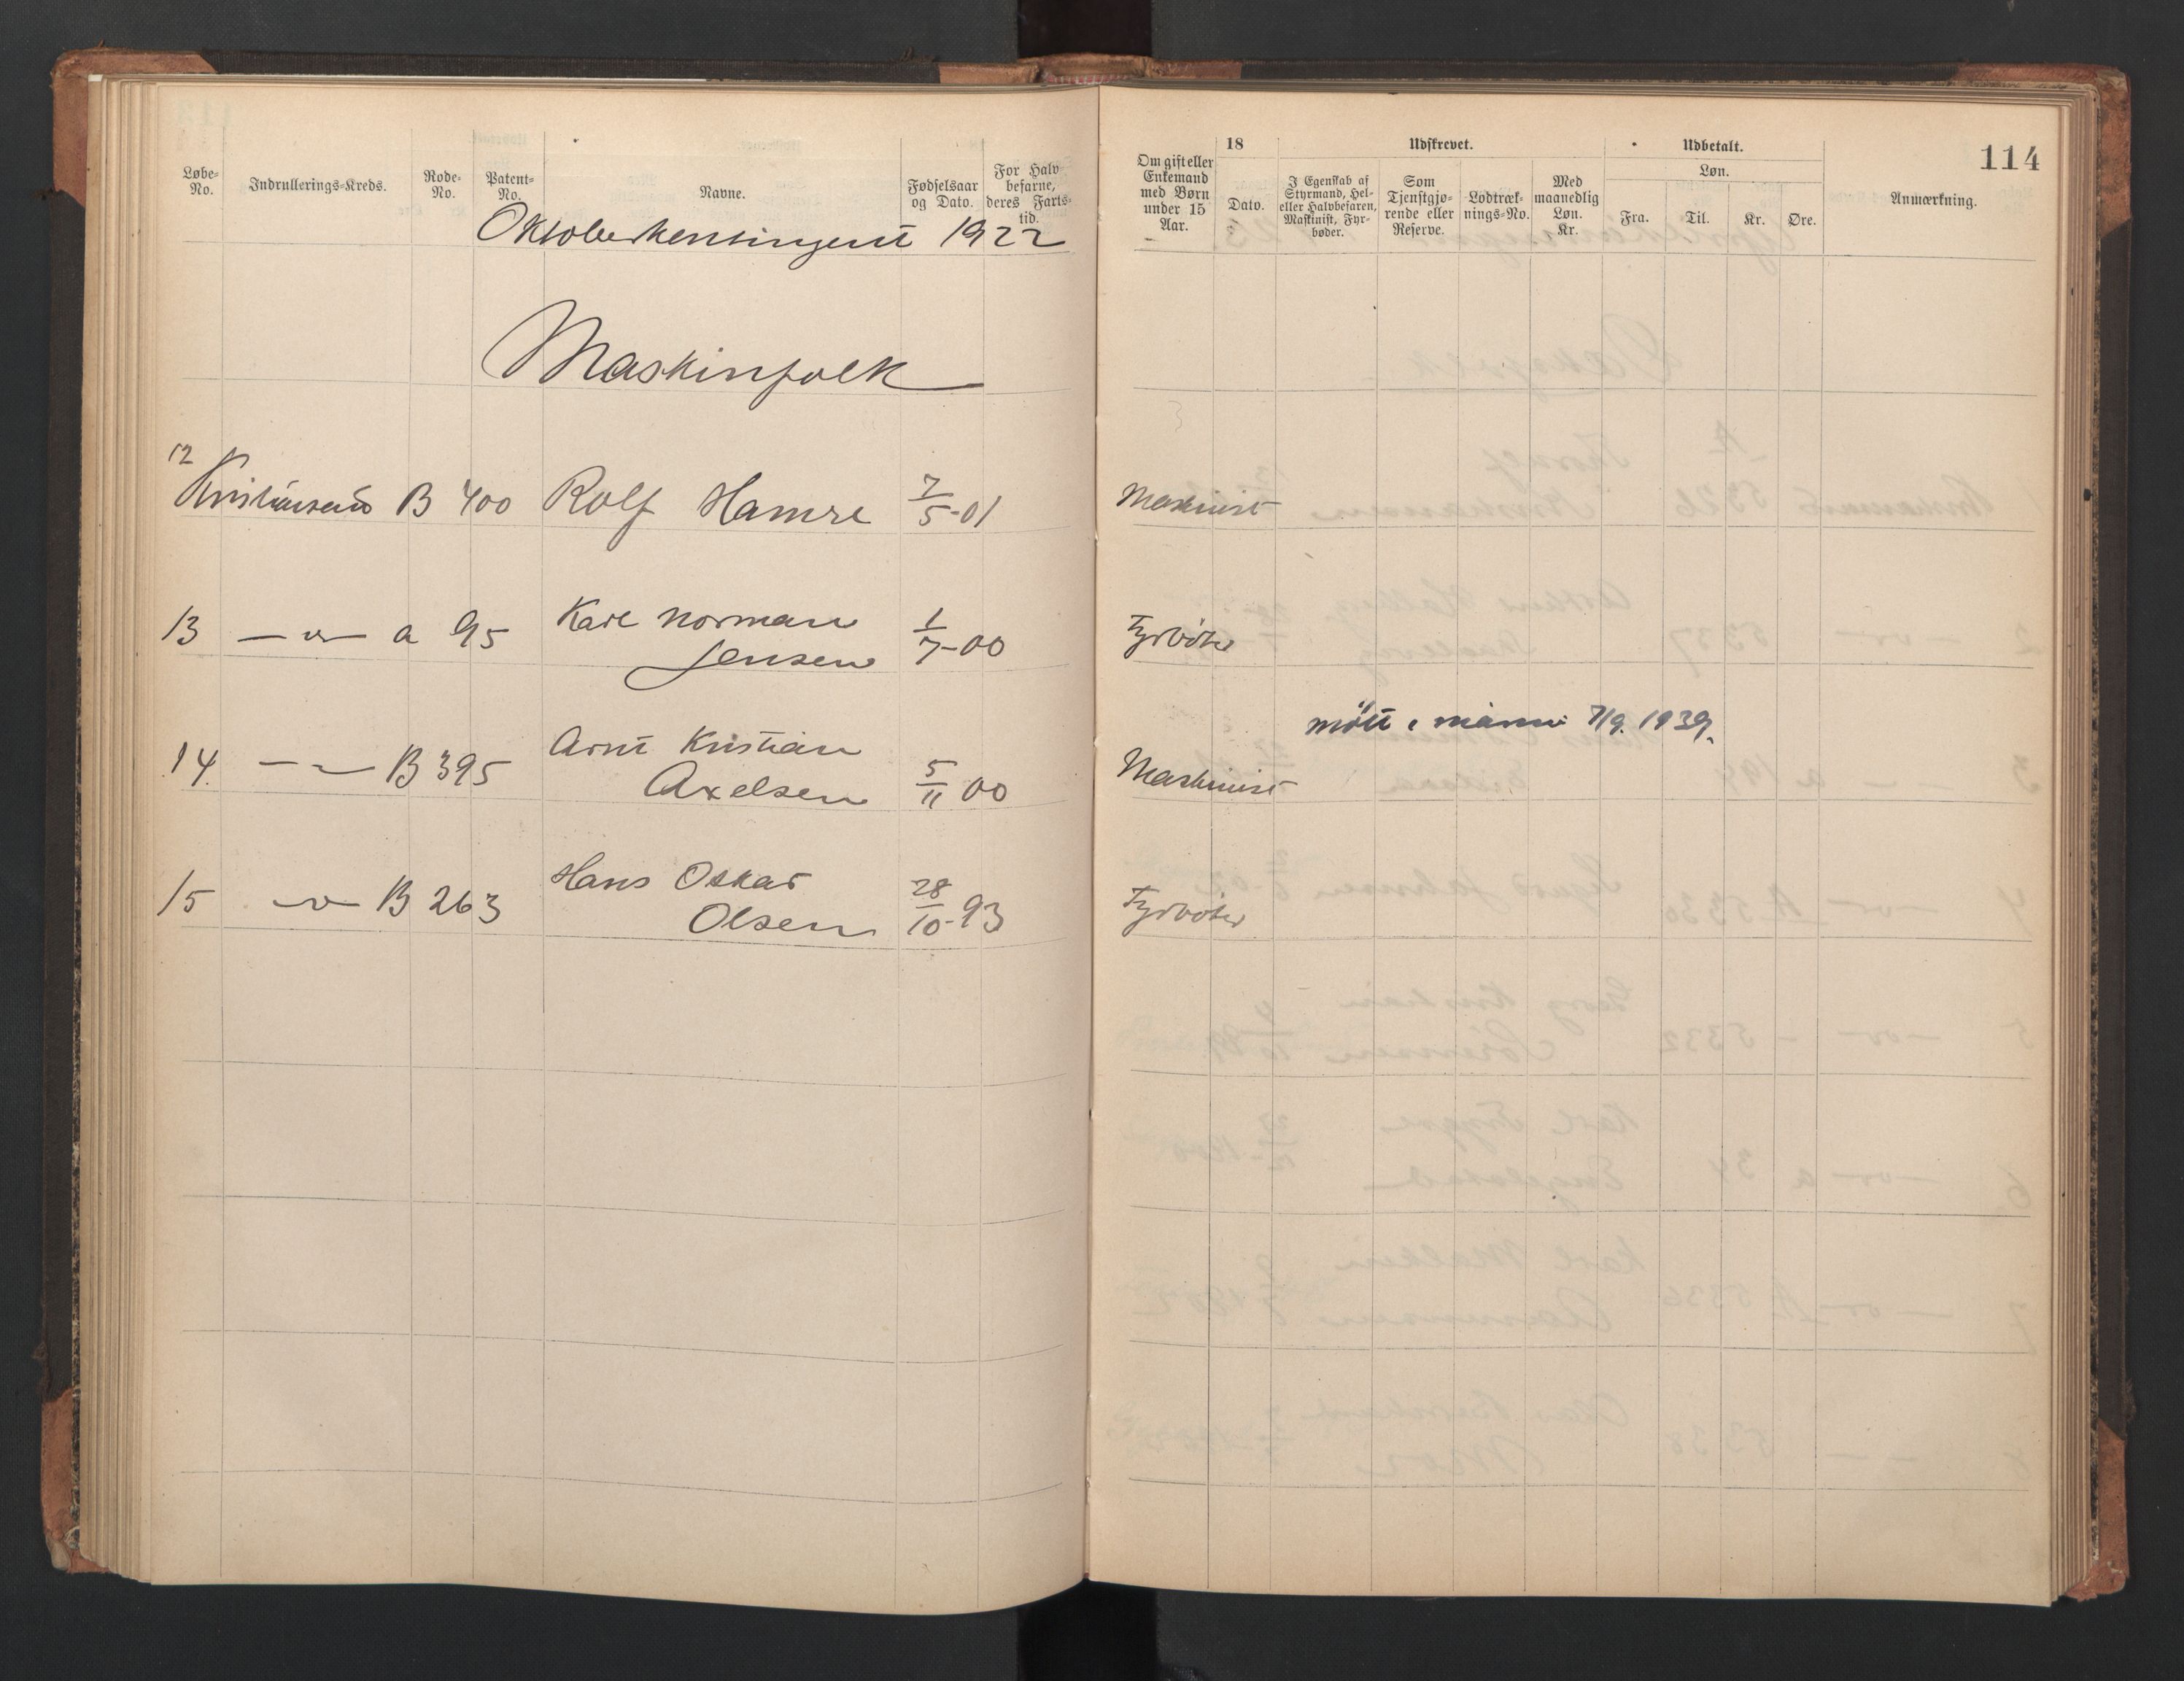 114
Løbe-No. Indrullerings-Kreds. Rode-No. Patent-No. Navne. Fødselsaar og Dato. For Halvbefarne, deres Fartstid.
Om gift eller Enkemand med Børn under 15 Aar. 18 Dato. Udskrevet. I Egenskab af Styrmand, Hel- eller Halvbefaren, Maskinist, Fyrbøder. Som Tjenstgjørende eller Reserve. Lodtræknings-No. Med maanedlig Løn. Kr. Udbetalt. Løn. Fra. Til. Kr. Øre. Anmærkning.
Oktoberkontingent 1922
Maskinfolk
12 Kristiansand B 400 Rolf Hamre 7/5-01 Maskinist
13 — " — a 95 Karl Norman Jensen 1/7-00 Fyrbøter
møtt i marine 7/9. 1939.
14. — " — B 395 Arnt Kristian Axelsen 5/11 00 Maskinist
15 — " — B 263 Hans Oskar Olsen 28/10-93 Fyrbøter